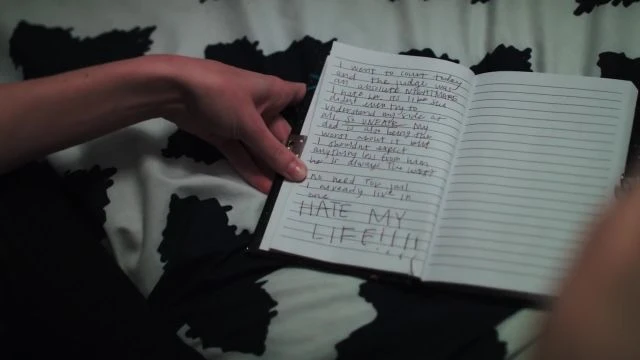 I went to court today
and the judge was
an absolute NIGHTMARE
I hate him its like he
didnt even try to
understand my side at
all so UNFAIR My
dad is also being the
worst about it but
I shouldnt expect
anything less from him
he is always the worst
No need for jail
I already live in
one
HATE MY
LIFE!!!!